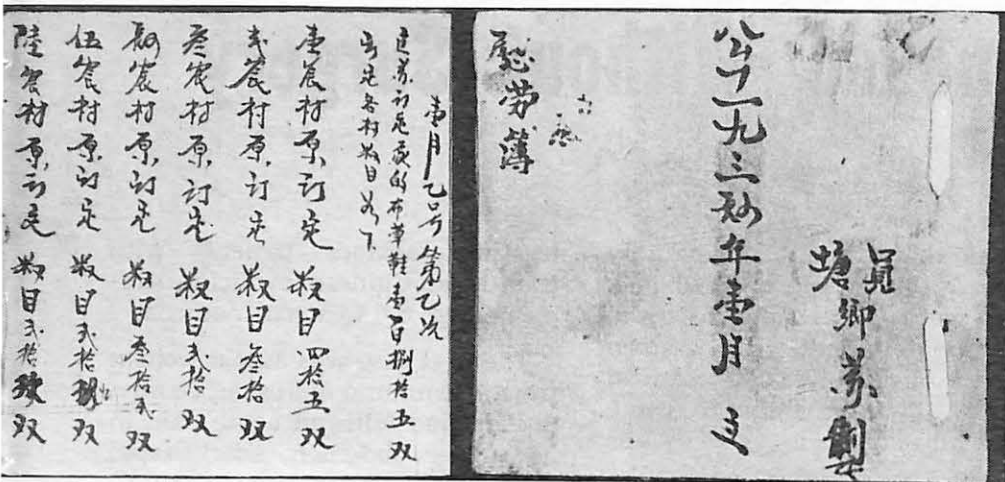 塘鄉苏製
公一九三肆年壹月立
慰劳簿
壹月乙号第乙次
区苏订定的布草鞋壹百捌拾五双
各村数目如下
壹農村原订定 数目四拾五双
弍農村原订定 数目叁拾双
叁農村原订定 数目弍拾双
肆農村原订定 数目叁拾弍双
伍農村原订定 数目弍拾双
陸農村原订定 数目弍拾双